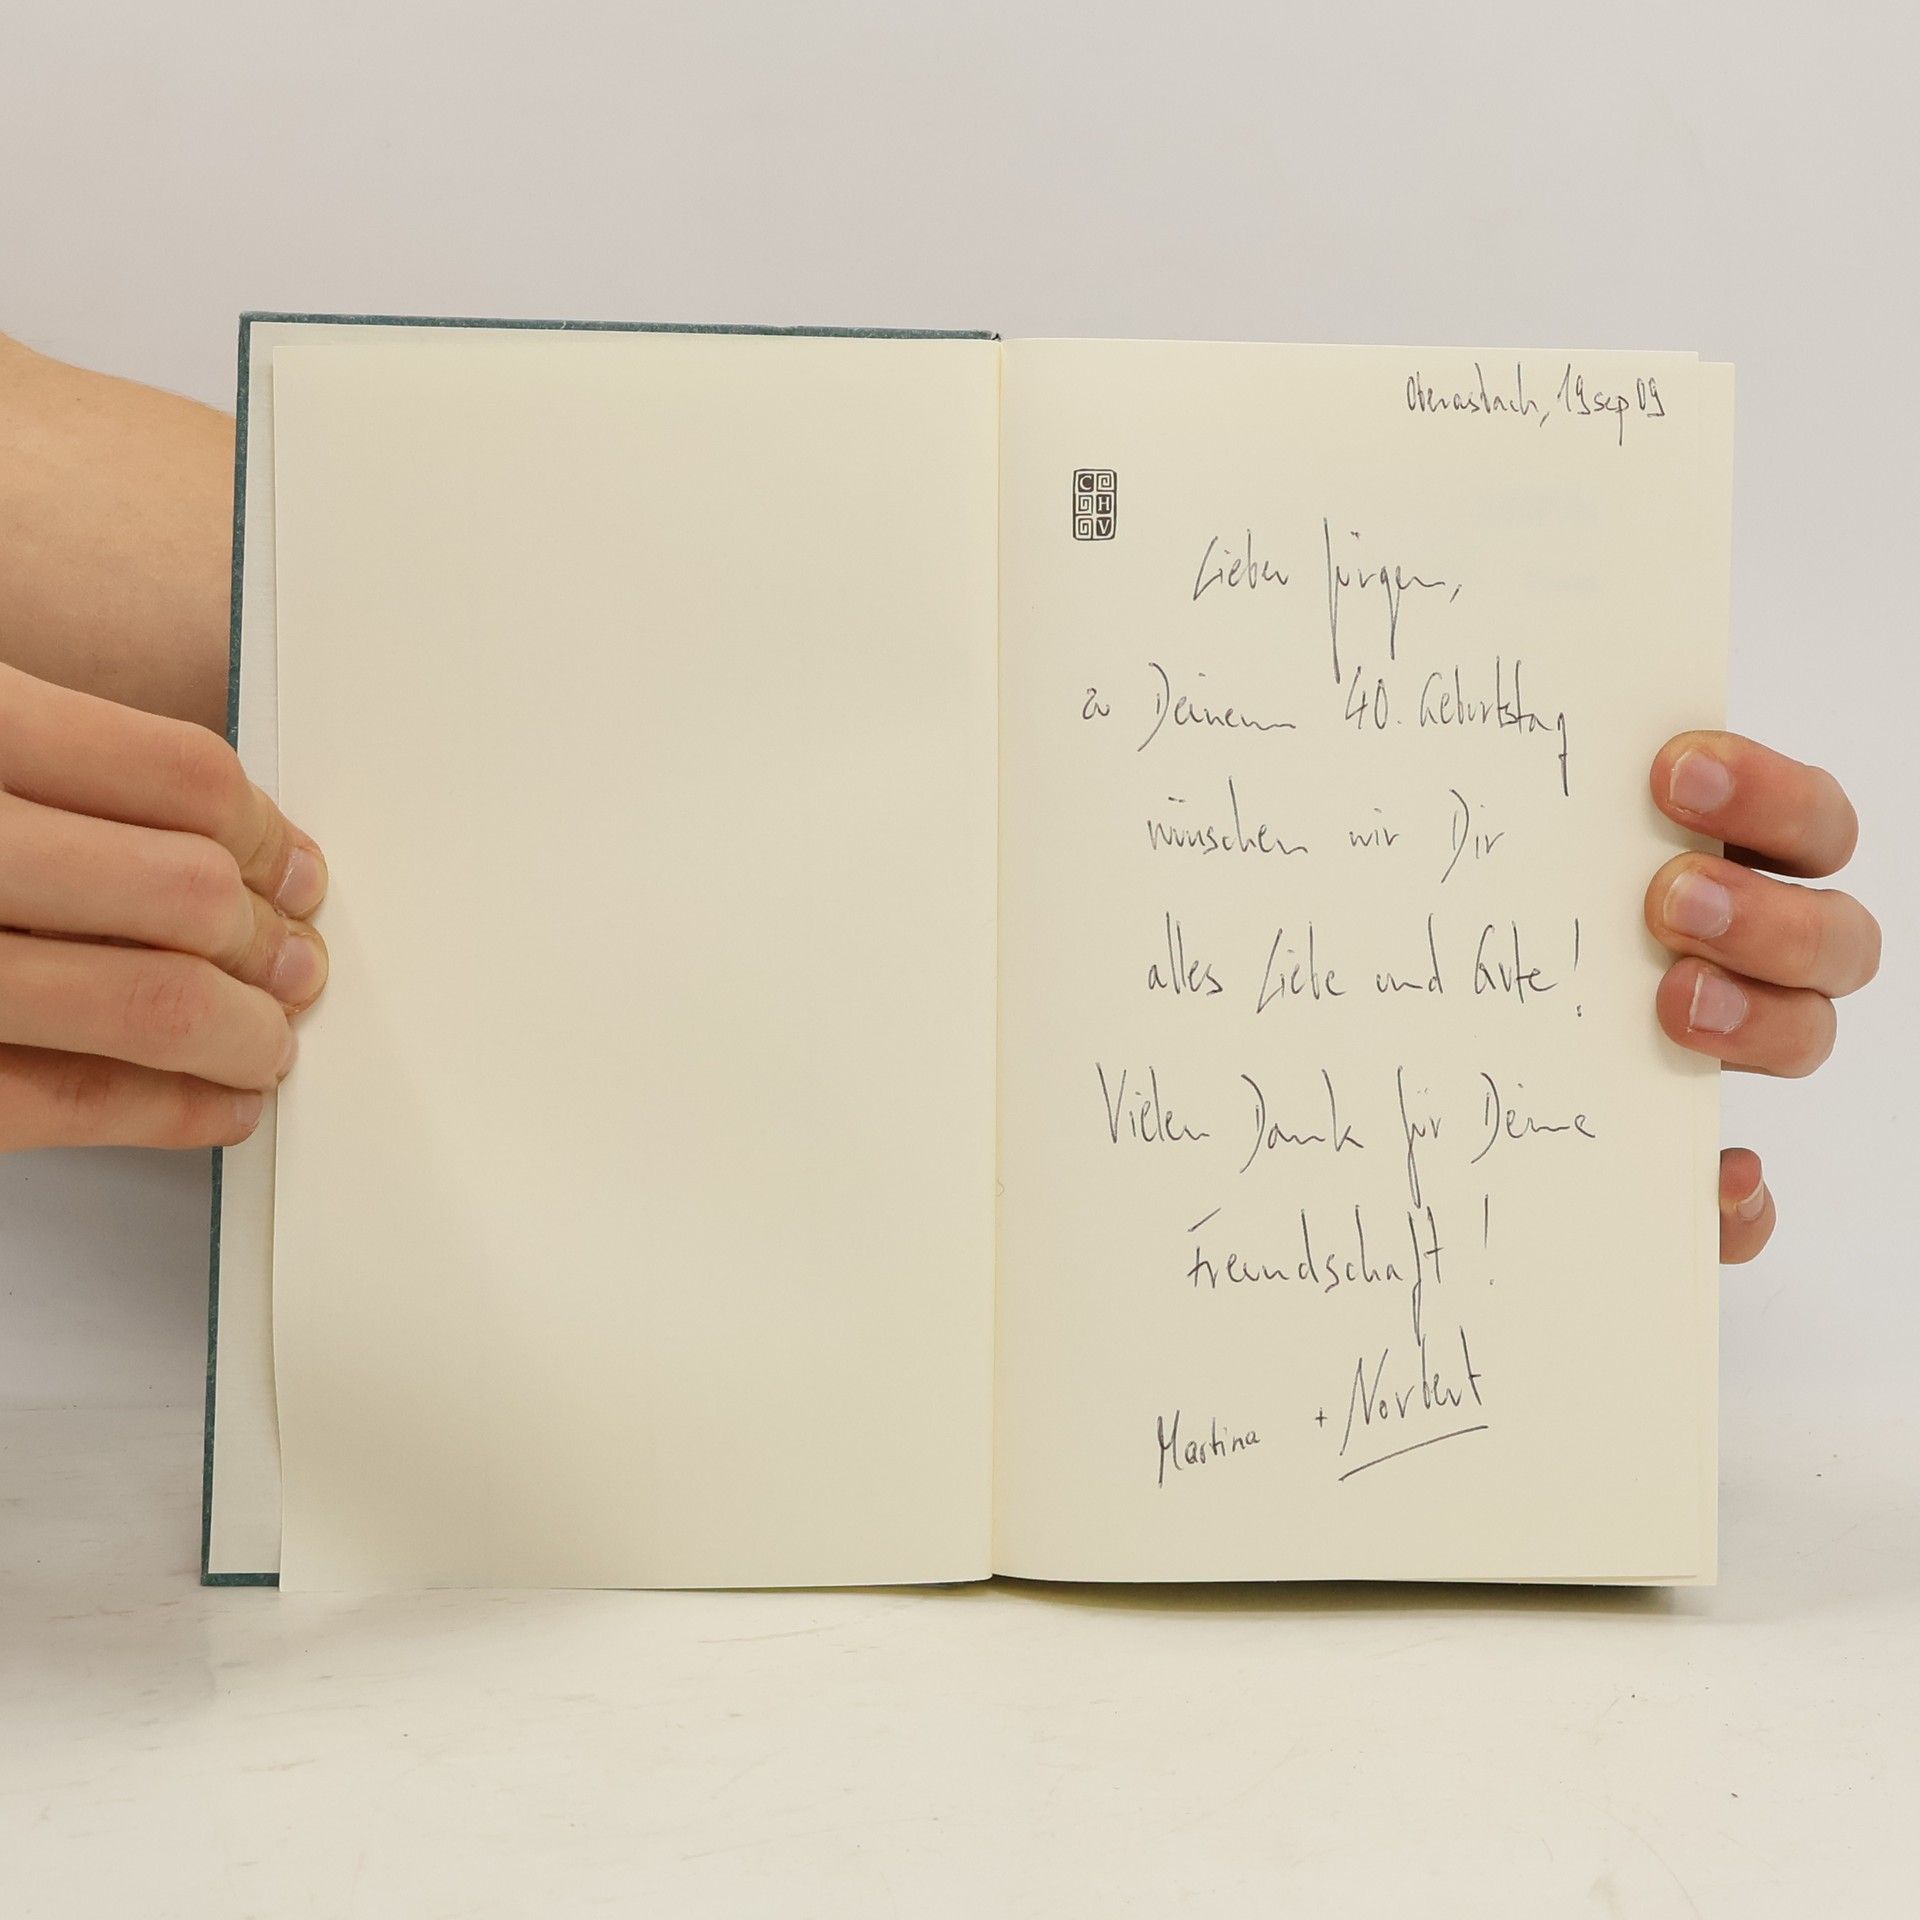 Oberasbach, 19 sep 09
C
H
V
Lieber Jürgen,
zu Deinem 40. Geburtstag
wünschen wir Dir
alles Liebe und Gute!
Vielen Dank für Deine
Freundschaft!
Martina + Norbert